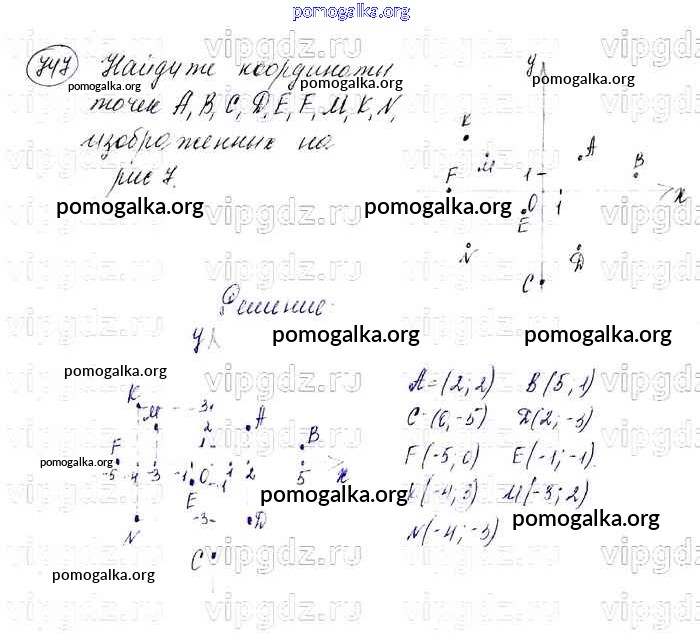 pomogalka.org
747 Найдите координаты
точек A, B, C, D, E, F, M, K, N,
изображенных на
рис 7.
y
K
M
A
B
F
1
O
1
x
E
N
D
C
pomogalka.org
pomogalka.org
pomogalka.org
pomogalka.org
pomogalka.org
Решение.
y
pomogalka.org
pomogalka.org
pomogalka.org
K
M
3
2
A
1
B
F
-5 -4 -3 -1 O 1 2 5 x
E
-1
-3
N
D
C
pomogalka.org
pomogalka.org
pomogalka.org
pomogalka.org
A=(2; 2) B(5, 1)
C(0, -5) D(2, -3)
F(-5, 0) E(-1; -1).
K(-4, 3) M(-3; 2)
N(-4; -3)
vipgdz.ru